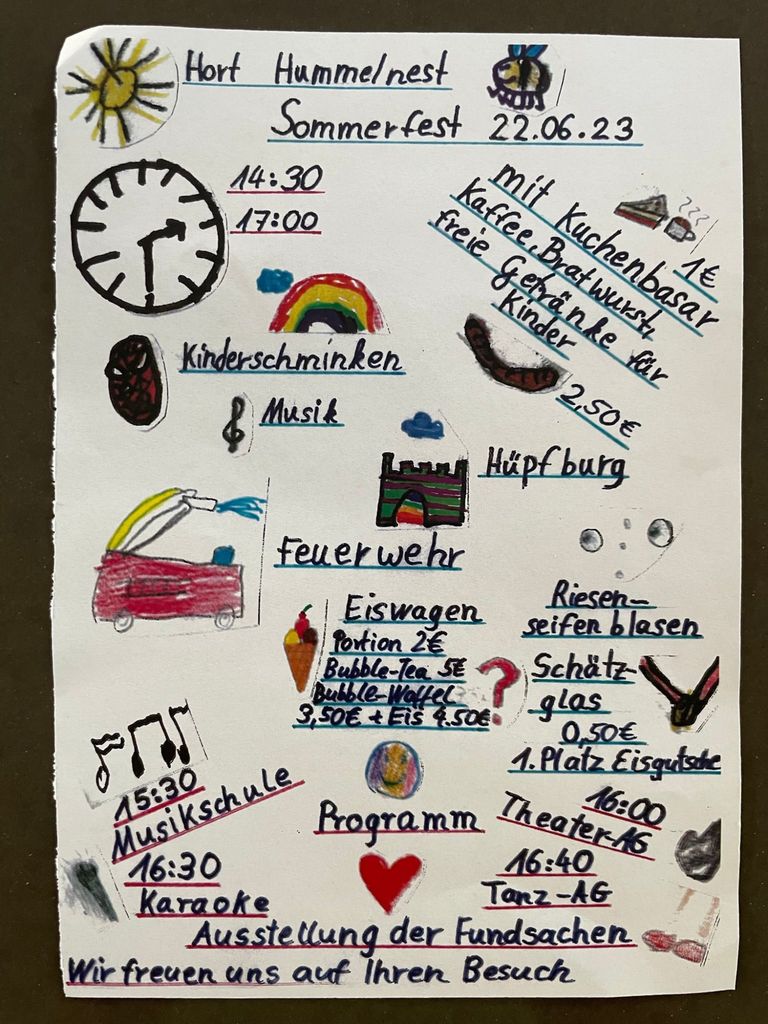 Hort Hummelnest
Sommerfest 22.06.23
14:30
17:00
mit Kuchenbasar
1€
Kaffee, Bratwurst,
freie Getränke für
Kinder
2,50€
Kinderschminken
Musik
Hüpfburg
Feuerwehr
Riesen-
seifenblasen
Eiswagen
Portion 2€
Bubble-Tea 5€
Bubble-Waffel
3,50€ + Eis 4.50€
?
Schätz-
glas
0,50€
1. Platz Eisgutsche
15:30
Musikschule
Programm
16:00
Theater-AG
16:30
Karaoke
16:40
Tanz-AG
Ausstellung der Fundsachen
Wir freuen uns auf Ihren Besuch